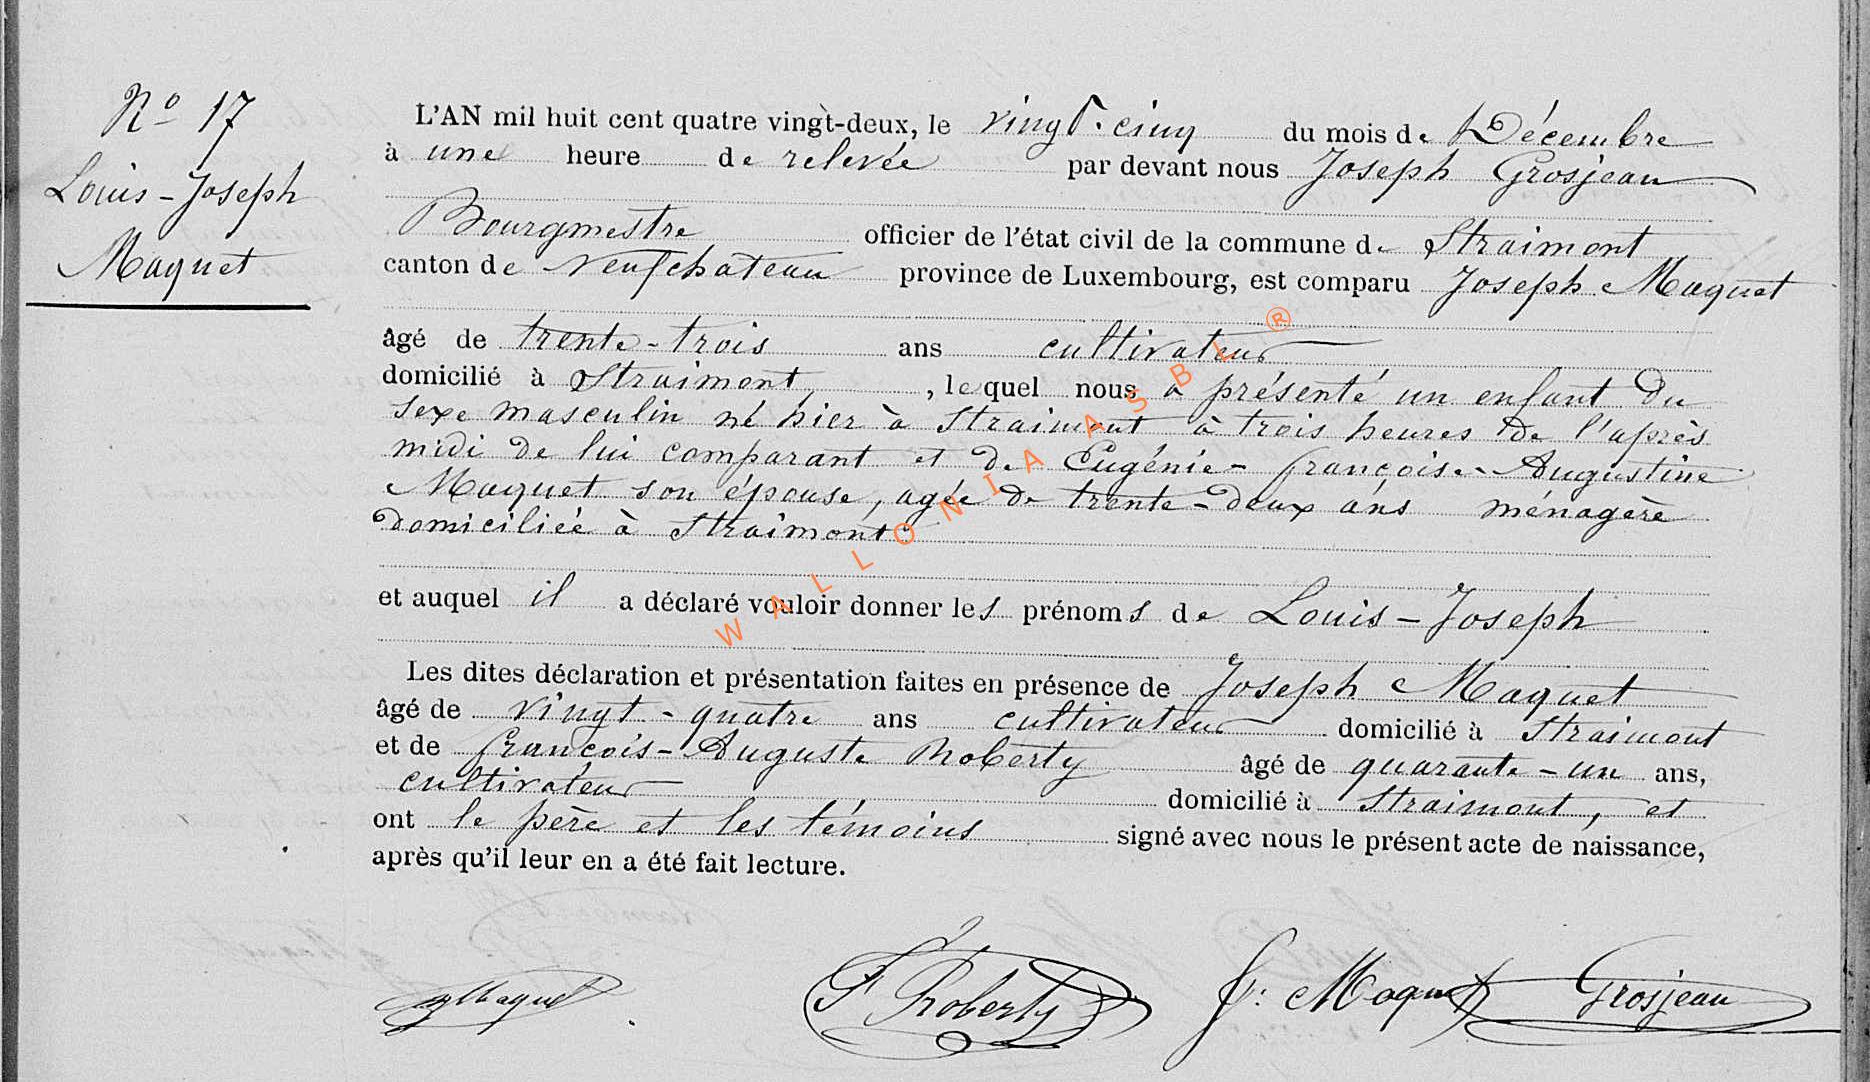 Nº 17
Louis-Joseph
Maquet
L'AN mil huit cent quatre vingt-deux, le vingt-cinq du mois de Décembre
à une heure de relevée par devant nous Joseph Grosjean
Bourgmestre officier de l'état civil de la commune de Straimont
canton de Neufchateau province de Luxembourg, est comparu Joseph Maquet
âgé de trente-trois ans cultivateur
domicilié à Straimont, lequel nous a présenté un enfant du
sexe masculin né hier à Straimont à trois heures de l'après
midi de lui comparant et de Eugénie-Françoise-Augustine
Maquet son épouse, agée de trente-deux ans ménagère
domiciliée à Straimont
et auquel il a déclaré vouloir donner les prénoms de Louis-Joseph
Les dites déclaration et présentation faites en présence de Joseph Maquet
âgé de vingt-quatre ans cultivateur domicilié à Straimont
et de François-Auguste Roberty âgé de quarante-un ans,
cultivateur domicilié à Straimont, et
ont le père et les témoins signé avec nous le présent acte de naissance,
après qu'il leur en a été fait lecture.
JMaquet F Roberty J. Maquet Grosjean
WALLONIA ASBL ®